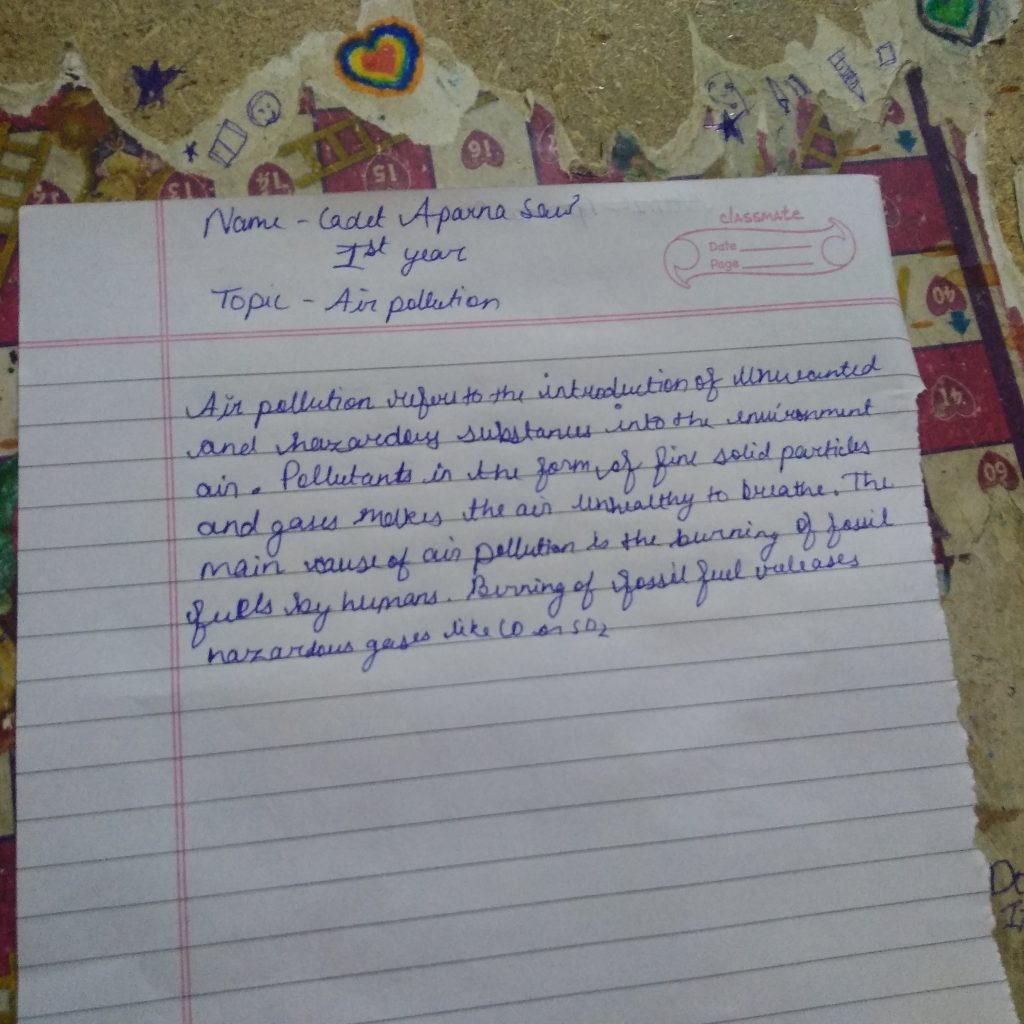 Name - Cadet Aparna Saw
1st year
Topic - Air pollution
classmate
Date
Page
Air pollution refers to the introduction of unwanted
and hazardous substances into the environment
air. Pollutants in the form of fine solid particles
and gases makes the air unhealthy to breathe. The
main cause of air pollution is the burning of fossil
fuels by humans. Burning of fossil fuel releases
hazardous gases like CO or SO2
13
14
15
16
40
41
60